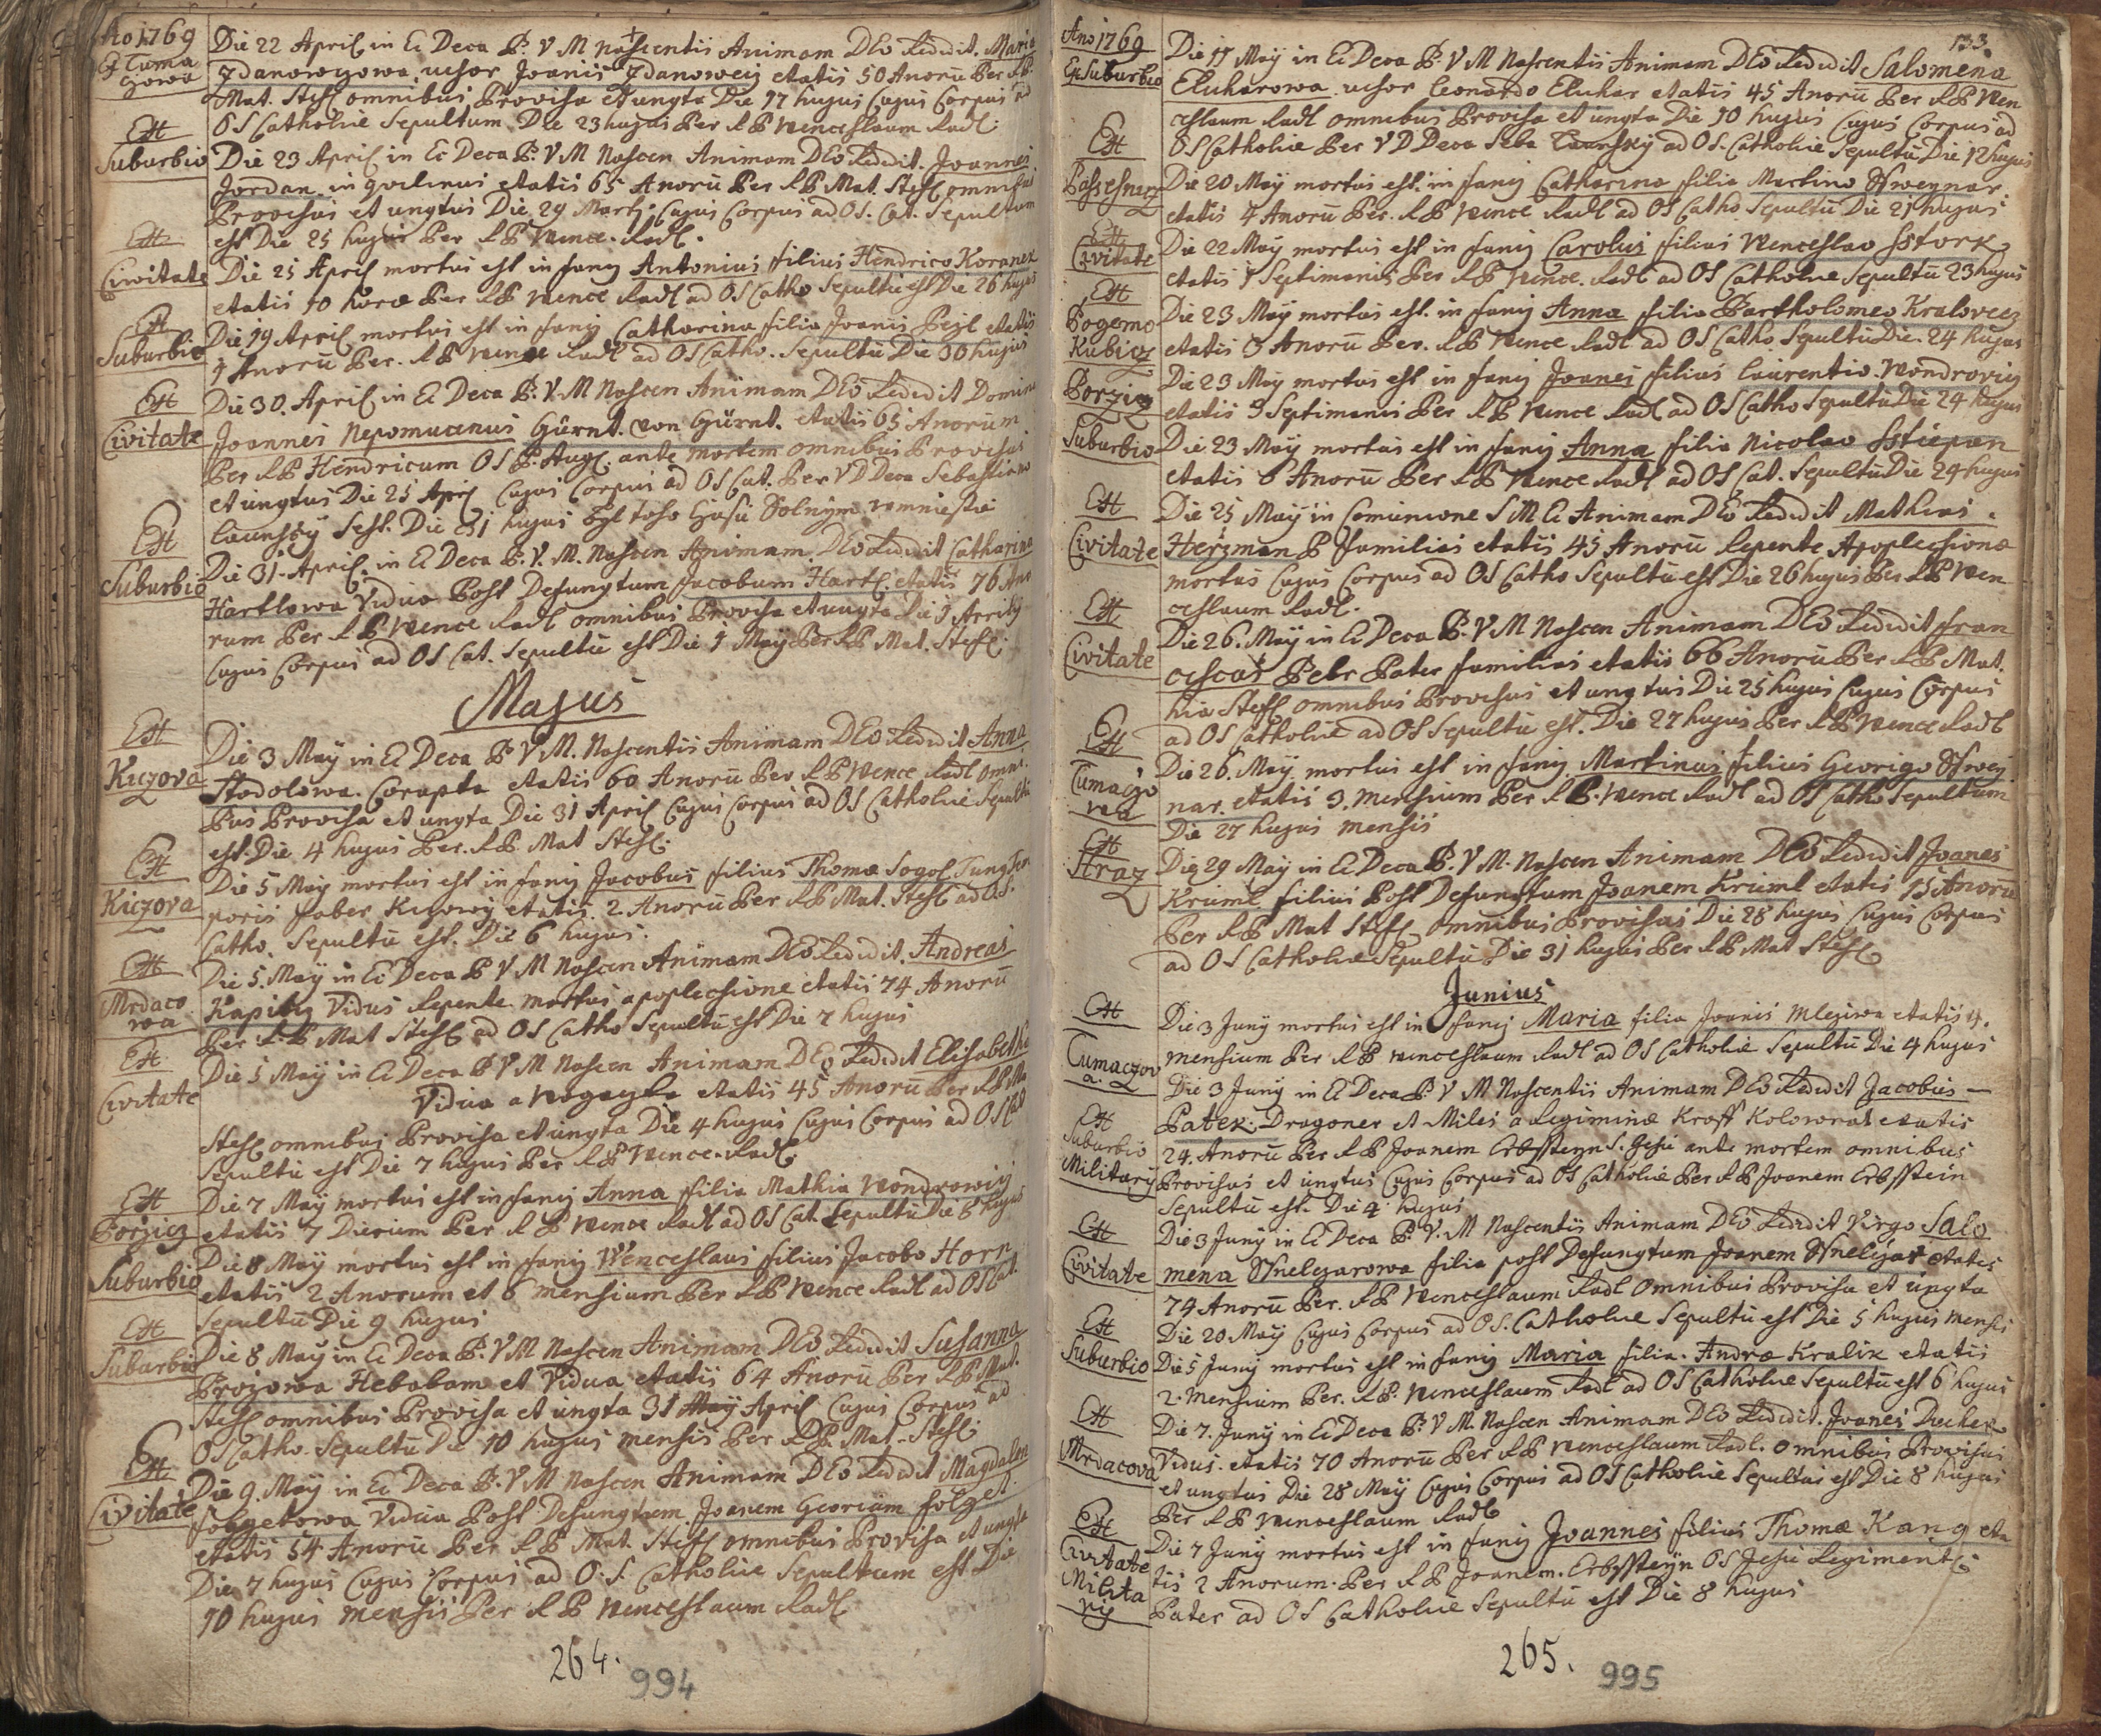 Ao 1769
Ex Tuma
czowa
Die 22 April in Ec Deca B: V M Nascentis Animam DEo Redidit. Maria
Zdanowczowa uchor Joanis Zdanoweiz etatis 50 Anorū Per RP
Mat. Stehl omnibus Provisa et ungta Die 17 hujus Cujus Corpus ad
OS Catholie Sepultum Die 23 hujus Per RP Wenceslaum Radl.
Ex
Suburbio
Die 23 April in Ec Deca B: V M Nascen Animam DEo Redidit. Joannes
Jordan in etatis 65 Anorū Per RP Mat. Stehl omnibus
Provisus et ungtus Die 29 Marti Cujus Corpus ad OS. Cat. Sepultum
est Die 25 hujus Per RP Wence. Radl.
Ex
Civitate
Die 25 April mortus est in fanj Antonius filius Hendrico Koranek
etatis 10 horæ Per RP Wence Radl ad OS Catho Sepultū est Die 26 hujus
Ex
Suburbio
Die 29 April mortus est in fanj Catharina filia Joanis Pejl etatis
4 Anorū Per. RP Wence Radl ad OS Catho. Sepultū Die 30 hujus
Ex
Civitate
Die 30. April in Ec Deca B: V. M Nascen Animam DEo Redidit Domin
Joannes Nepomucenus Gürnt. von Gürnt. etatis 65 Anorum
Per RP Hendricum OS P. Aug. ante mortem omnibus Provisus
et ungtus Die 25 April Cujus Corpus ad OS Cat. Per VD Deca Sebastiano
Caunsky Sest. Die 31 hujus Byl toho Času Solnym
Ex
Suburbio
Die 31. April. in Ec Deca B: V. M. Nascen Animam DEo Redidit Catharina
Hartlowa Vidua Post Defungtum Jacobum Hartl. etatis 76 Ano
rum Per RP. Wence Radl omnibus Provisa et ungta Die 9 April
Cujus Corpus ad OS Cat. Sepultū est Die 1 May Per RP Mat. Stehl.
Majus
Ex
Kiczova
Die 3 May in Ec Deca B V M. Nascentis Animam DEo Redidit Anna
Stodolowa. Corapta etatis 60 Anorū Per RP Wence Radl omni
bus Provisa et ungta Die 31 April Cujus Corpus ad OS Catholie Sepultū
est. Die 4 hujus Per. RP Mat Stehl.
Ex
Kiczova
Die 5 May mortus est in fanj Jacobus filius Thomæ Sogol Tung Tem
poris faber Kiczowy etatis 2. Anorū Per RP Mat. Stehl ad OS.
Catho. Sepultū est. Die 6 hujus.
Ex
Mrdaco
wa
Die 5. May in Ec Deca B V M Nascen Animam DEo Redidit. Andreas
Kapitz Vidus Repente mortus apoplecsione etatis 74 Anorū
Per RP Mat Stehl ad OS Catho Sepultū est Die 7 hujus
Ex
Civitate
Die 5 May in Ec Deca B V M Nascen Animam DEo Redidit Elisabetha
Vidua a etatis 45 Anorū Per RP Ma
Stehl omnibus Provisa et ungta Die 4 hujus Cujus Corpus ad OS Cat
Sepultū est Die 7 hujus Per RP Wence. Radl.
Ex
Borzicz
Die 7 May mortus est in fanj Anna filia Mathia Wondrowicz
etatis 7 Dierum Per RP Wence Radl ad OS Cat. Sepultū Die 8 hujus
Suburbio
Die 8 May mortus est in fanj Wenceslaus filius Jacobo Horn
etatis 2 Anorum et 6 mensium Per RP Wence Radl ad OS Cat.
Sepultū Die 9 hujus
Ex
Suburbio
Die 8 May in Ec Deca B: V M Nascen Animam DEo Redidit. Susanna
Brozowa Hebabam et Vidua etatis 64 Anorū Per RP Mat.
Stehl omnibus Provisa et ungta 31 May April Cujus Corpus ad
OS Catho. Sepultū Die 10 hujus mensis Per RP. Mat. Stehl
Ex
Civitate
Die 9. May in Ec Deca B. V M Nascen Animam DEo Redidit Magdalena
Folgetowa Vidua Post Defungtum Joanem Georium Folget.
etatis 54 Anorū Per RP Mat. Stehl omnibus Provisa et ungta
Die 7 hujus Cujus Corpus ad O. S. Catholie Sepultum est Die
10 hujus mensis Per RP Wenceslaum Radl
264.
994
133.
Ano 1769
Ex Suburbio
Die 11 May in Ec Deca B: V M Nascentis Animam DEo Redidit Salomena
Elucharowa uchor Leonardo Eluhar etatis 45 Anorū Per RP Wen
ceslaum Radl omnibus Provisa et ungta Die 10 hujus Cujus Corpus ad
OS Catholie Per VD Deca Seba Caunsky ad OS. Catholie Sepultū Die 12 hujus
Ex
Die 20 May mortus est. in fanj Catharina filia Martino Sswejnar.
etatis 4 Anorū Per. RP Wence Radl ad OS Catho Sepultū Die 21 hujus
Ex
Civitate
Die 22 May mortus est in fanj Carolus filius Wenceslao Sstork
etatis 7 Septimanis Per RP Wence. Radl ad OS Catholie Sepultū 23 hujus
Ex
Pogemo
Kubicz
Die 23 May mortus est. in fanj Anna filia Bartholomeo Kralovecz
etatis 3 Anorū Per. RP Wence Radl ad OS Catho Sepultū Die. 24 hujus
Borzicz
Die 23 May mortus est in fanj Joanes filius Laurentio Wondrovicz
etatis 3 Septimanis Per RP Wence Radl ad OS Catho Sepultū Die 24 hujus
Suburbio
Die 23 May mortus est in fanj Anna filia Nicolao Sstiepan
etatis 6 Anorū Per RP Wence Radl ad OS Cat. Sepultū Die 24 hujus
Ex
Civitate
Die 25 May in Comunione S M Ec Animam DEo Redidit Mathias.
Herzman P Familias etatis 45 Anorū Repente Apoplecsione
mortus Cujus Corpus ad OS Catho Sepultū est Die 26 hujus Per RP Wen
ceslaum Radl.
Ex
Civitate
Die 26. May in Ec Deca B. V M Nascen Animam DEo Redidit Fran
ciscus Pehr Pater familias etatis 66 Anorū Per RP Mat.
hia Stehl omnibus Provisus et ungtus Die 25 hujus Cujus Corpus
ad OS Catholie ad OS Sepultū est. Die 27 hujus Per RP Wence Radl
Ex
Tumaczo
wa
Die 26. May mortus est in fanj Martinus filius Georigo Sswej
nar. etatis 9. mensium Per RP. Wence Radl ad OS Catho Sepultum
Die 27 hujus mensis
Ex
Straz
Die 29 May in Ec Deca B: V M. Nascen Animam DEo Redidit Joanes
Kriml filius Post Defunctum Joanem Kriml etatis 15 Anorū
Per RP Mat Stehl omnibus Provisus Die 28 hujus Cujus Corpus
ad OS Catholie Sepultū Die 31 hujus Per RP Mat Stehl
Junius
Ex
Tumaczov
a.
Die 3 Junÿ mortus est in fanj Maria filia Joanis Mlegiwa etatis 4.
mensium Per RP Wenceslaum Radl ad OS Catholie Sepultū Die 4 hujus
Ex
Suburbio
Military
Die 3 Junÿ in Ec Deca B: V M Nascentis Animam DEo Redidit Jacobus —
Patek. Dragoner et Miles a Regiminæ Kroff Kolowrat etatis
24. Anorū Per RP Joanem Erbssteyn S. Jesu ante mortem omnibus
Provisus et ungtus Cujus Corpus ad OS Catholie Per RP Joanem Erbsstein
Sepultū est. Die 4 hujus
Ex
Civitate
Die 3 Junÿ in Ec Deca B. V. M Nascentis Animam DEo Redidit Virgo Salo
mena Ssnelczarowa filia post Defungtum Joanem Ssnelczar etatis
74 Anorū Per. RP Wenceslaum Radl omnibus Provisa et ungta
Die 20 May Cujus Corpus ad OS. Catholie Sepultū est Die 5 hujus mensis
Ex
Suburbio
Die 5 Junÿ mortus est in fanj Maria filia. Andræ Kralik etatis
2. mensium Per. RP. Wenceslaum Radl ad OS Catholie Sepultū est 6 hujus
Ex
Mrdacova
Die 7. Junÿ in Ec Deca B: V M. Nascen Animam DEo Redidit. Joanes Duchek
Vidus. etatis 70 Anorū Per RP Wenceslaum Radl. omnibus Provisus
et ungtus Die 28 May Cujus Corpus ad OS Catholie Sepultus est Die 8 hujus
Per RP Wenceslaum Radl
Ex
Civitate
Milita
rij
Die 7 Junÿ mortus est in fanj Joannes filius Thomæ Kang eta
tis 2 Anorum. Per RP Joanem. Erbssteyn OS Jesu Regiment.
Pater ad OS Catholie Sepultū est Die 8 hujus
265.
995